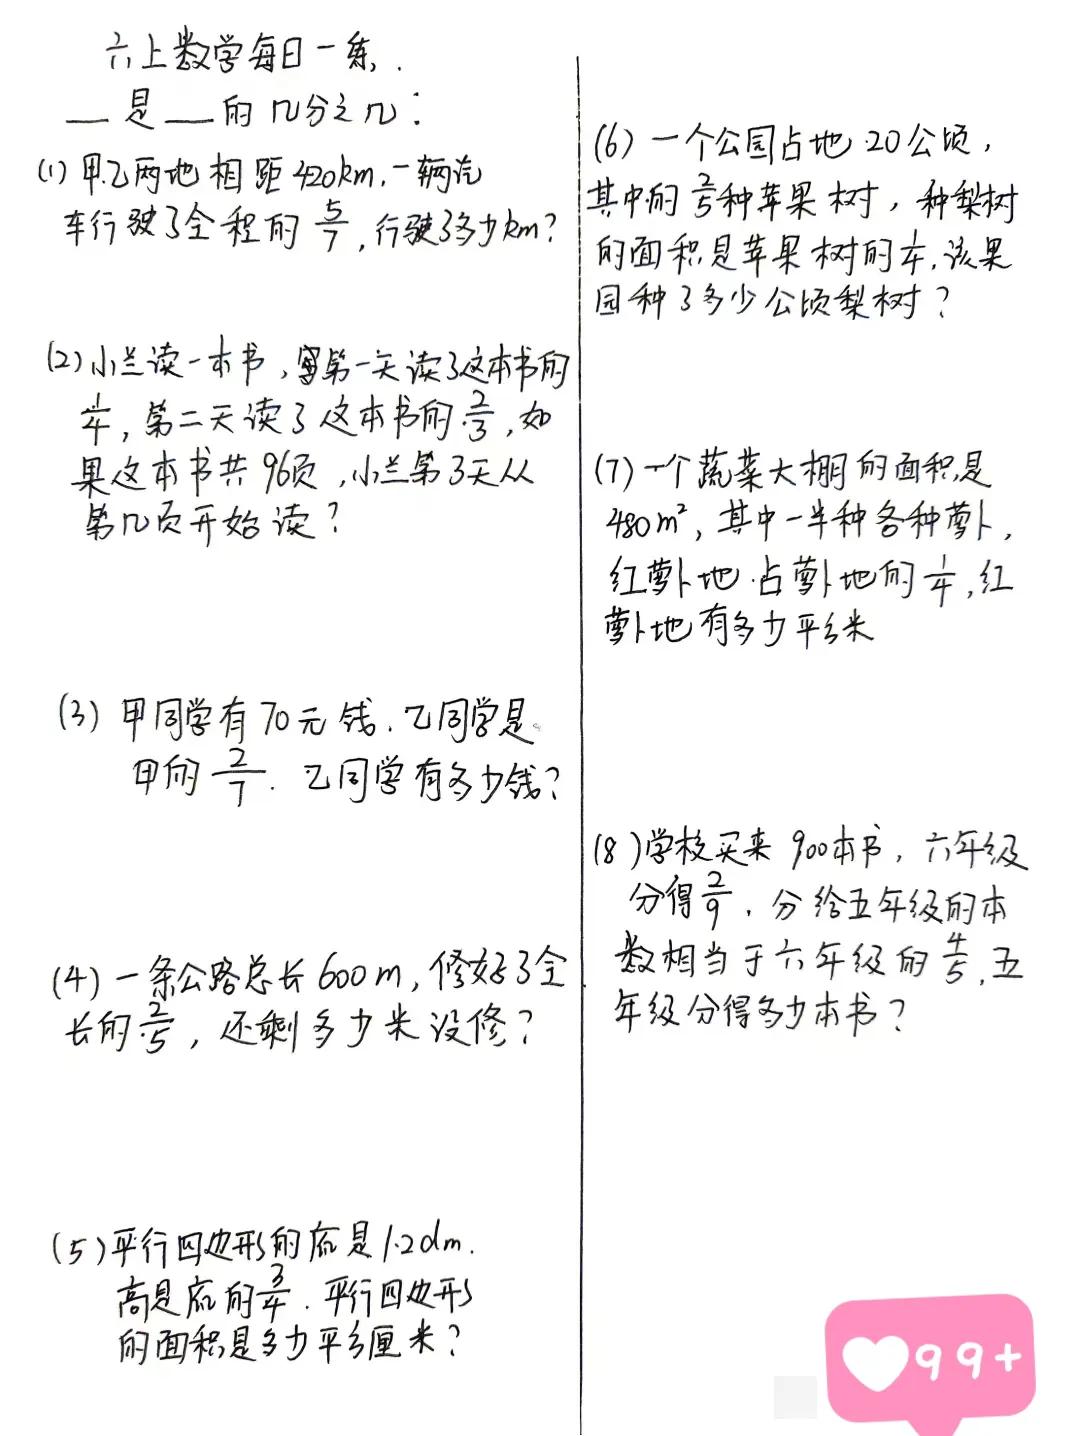 六上数学每日一练.
__是__的几分之几:
(1) 甲.乙两地相距420km,一辆汽
车行驶了全程的5/7,行驶了多少km?
(2)小兰读一本书,第一天读了这本书的
1/4,第二天读了这本书的2/3,如
果这本书共96页,小兰第3天从
第几页开始读?
(3) 甲同学有70元钱.乙同学是
甲的2/7.乙同学有多少钱?
(4) 一条公路总长600m,修好了全
长的2/5,还剩多少米没修?
(5)平行四边形的底是1.2dm.
高是底的3/4.平行四边形
的面积是多少平方厘米?
(6) 一个公园占地20公顷,
其中的2/5种苹果树,种梨树
的面积是苹果树的1/4.该果
园种了多少公顷梨树?
(7)一个蔬菜大棚的面积是
480m²,其中一半种各种萝卜,
红萝卜地占萝卜地的1/4,红
萝卜地有多少平方米
(8)学校买来900本书,六年级
分得2/9,分给五年级的本
数相当于六年级的4/5,五
年级分得多少本书?
99+